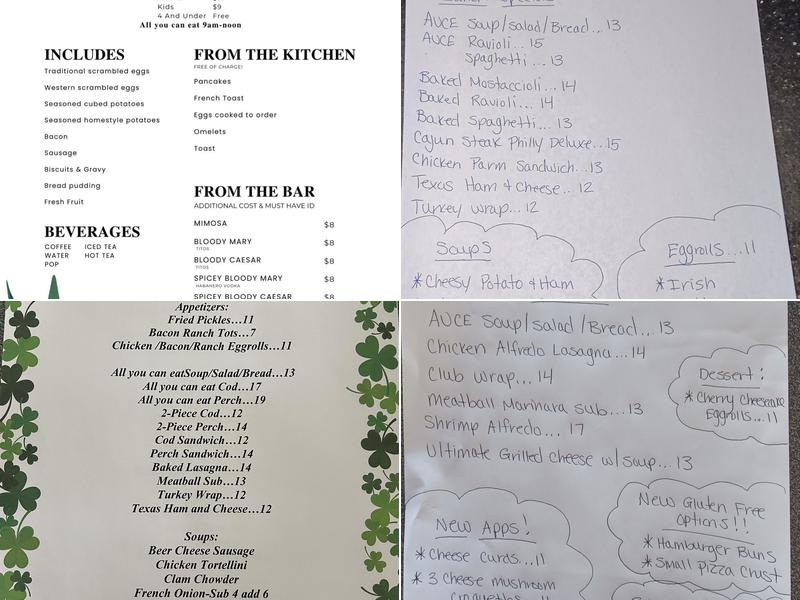 Kids $9
4 And Under Free
All you can eat 9am-noon
INCLUDES
Traditional scrambled eggs
Western scrambled eggs
Seasoned cubed potatoes
Seasoned homestyle potatoes
Bacon
Sausage
Biscuits & Gravy
Bread pudding
Fresh Fruit
BEVERAGES
COFFEE ICED TEA
WATER HOT TEA
POP
FROM THE KITCHEN
FREE OF CHARGE!
Pancakes
French Toast
Eggs cooked to order
Omelets
Toast
FROM THE BAR
ADDITIONAL COST & MUST HAVE ID
MIMOSA $8
BLOODY MARY $8
TITOS
BLOODY CAESAR $8
TITOS
SPICEY BLOODY MARY $8
HABANERO VODKA
SPICEY BLOODY CAESAR $8
AUCE Soup/Salad/Bread... 13
AUCE Ravioli... 15
Spaghetti... 13
Baked Mostaccioli... 14
Baked Ravioli... 14
Baked Spaghetti... 13
Cajun Steak Philly Deluxe...15
Chicken Parm Sandwich...13
Texas Ham & Cheese... 12
Turkey Wrap... 12
Soups
* Cheesy Potato & Ham
Eggrolls...11
* Irish
Appetizers:
Fried Pickles…11
Bacon Ranch Tots…7
Chicken /Bacon/Ranch Eggrolls…11
All you can eatSoup/Salad/Bread…13
All you can eat Cod…17
All you can eat Perch…19
2-Piece Cod…12
2-Piece Perch…14
Cod Sandwich…12
Perch Sandwich…14
Baked Lasagna…14
Meatball Sub…13
Turkey Wrap…12
Texas Ham and Cheese…12
Soups:
Beer Cheese Sausage
Chicken Tortellini
Clam Chowder
French Onion-Sub 4 add 6
AUCE Soup/Salad/Bread... 13
Chicken Alfredo Lasagna... 14
Club Wrap... 14
Meatball Marinara Sub... 13
Shrimp Alfredo... 17
Ultimate Grilled Cheese w/ Soup... 13
Dessert:
* Cherry Cheesecake
Eggrolls...11
New Apps!
* Cheese Curds...11
* 3 Cheese mushroom
New Gluten Free
Options!!
* Hamburger Buns
* Small Pizza Crust